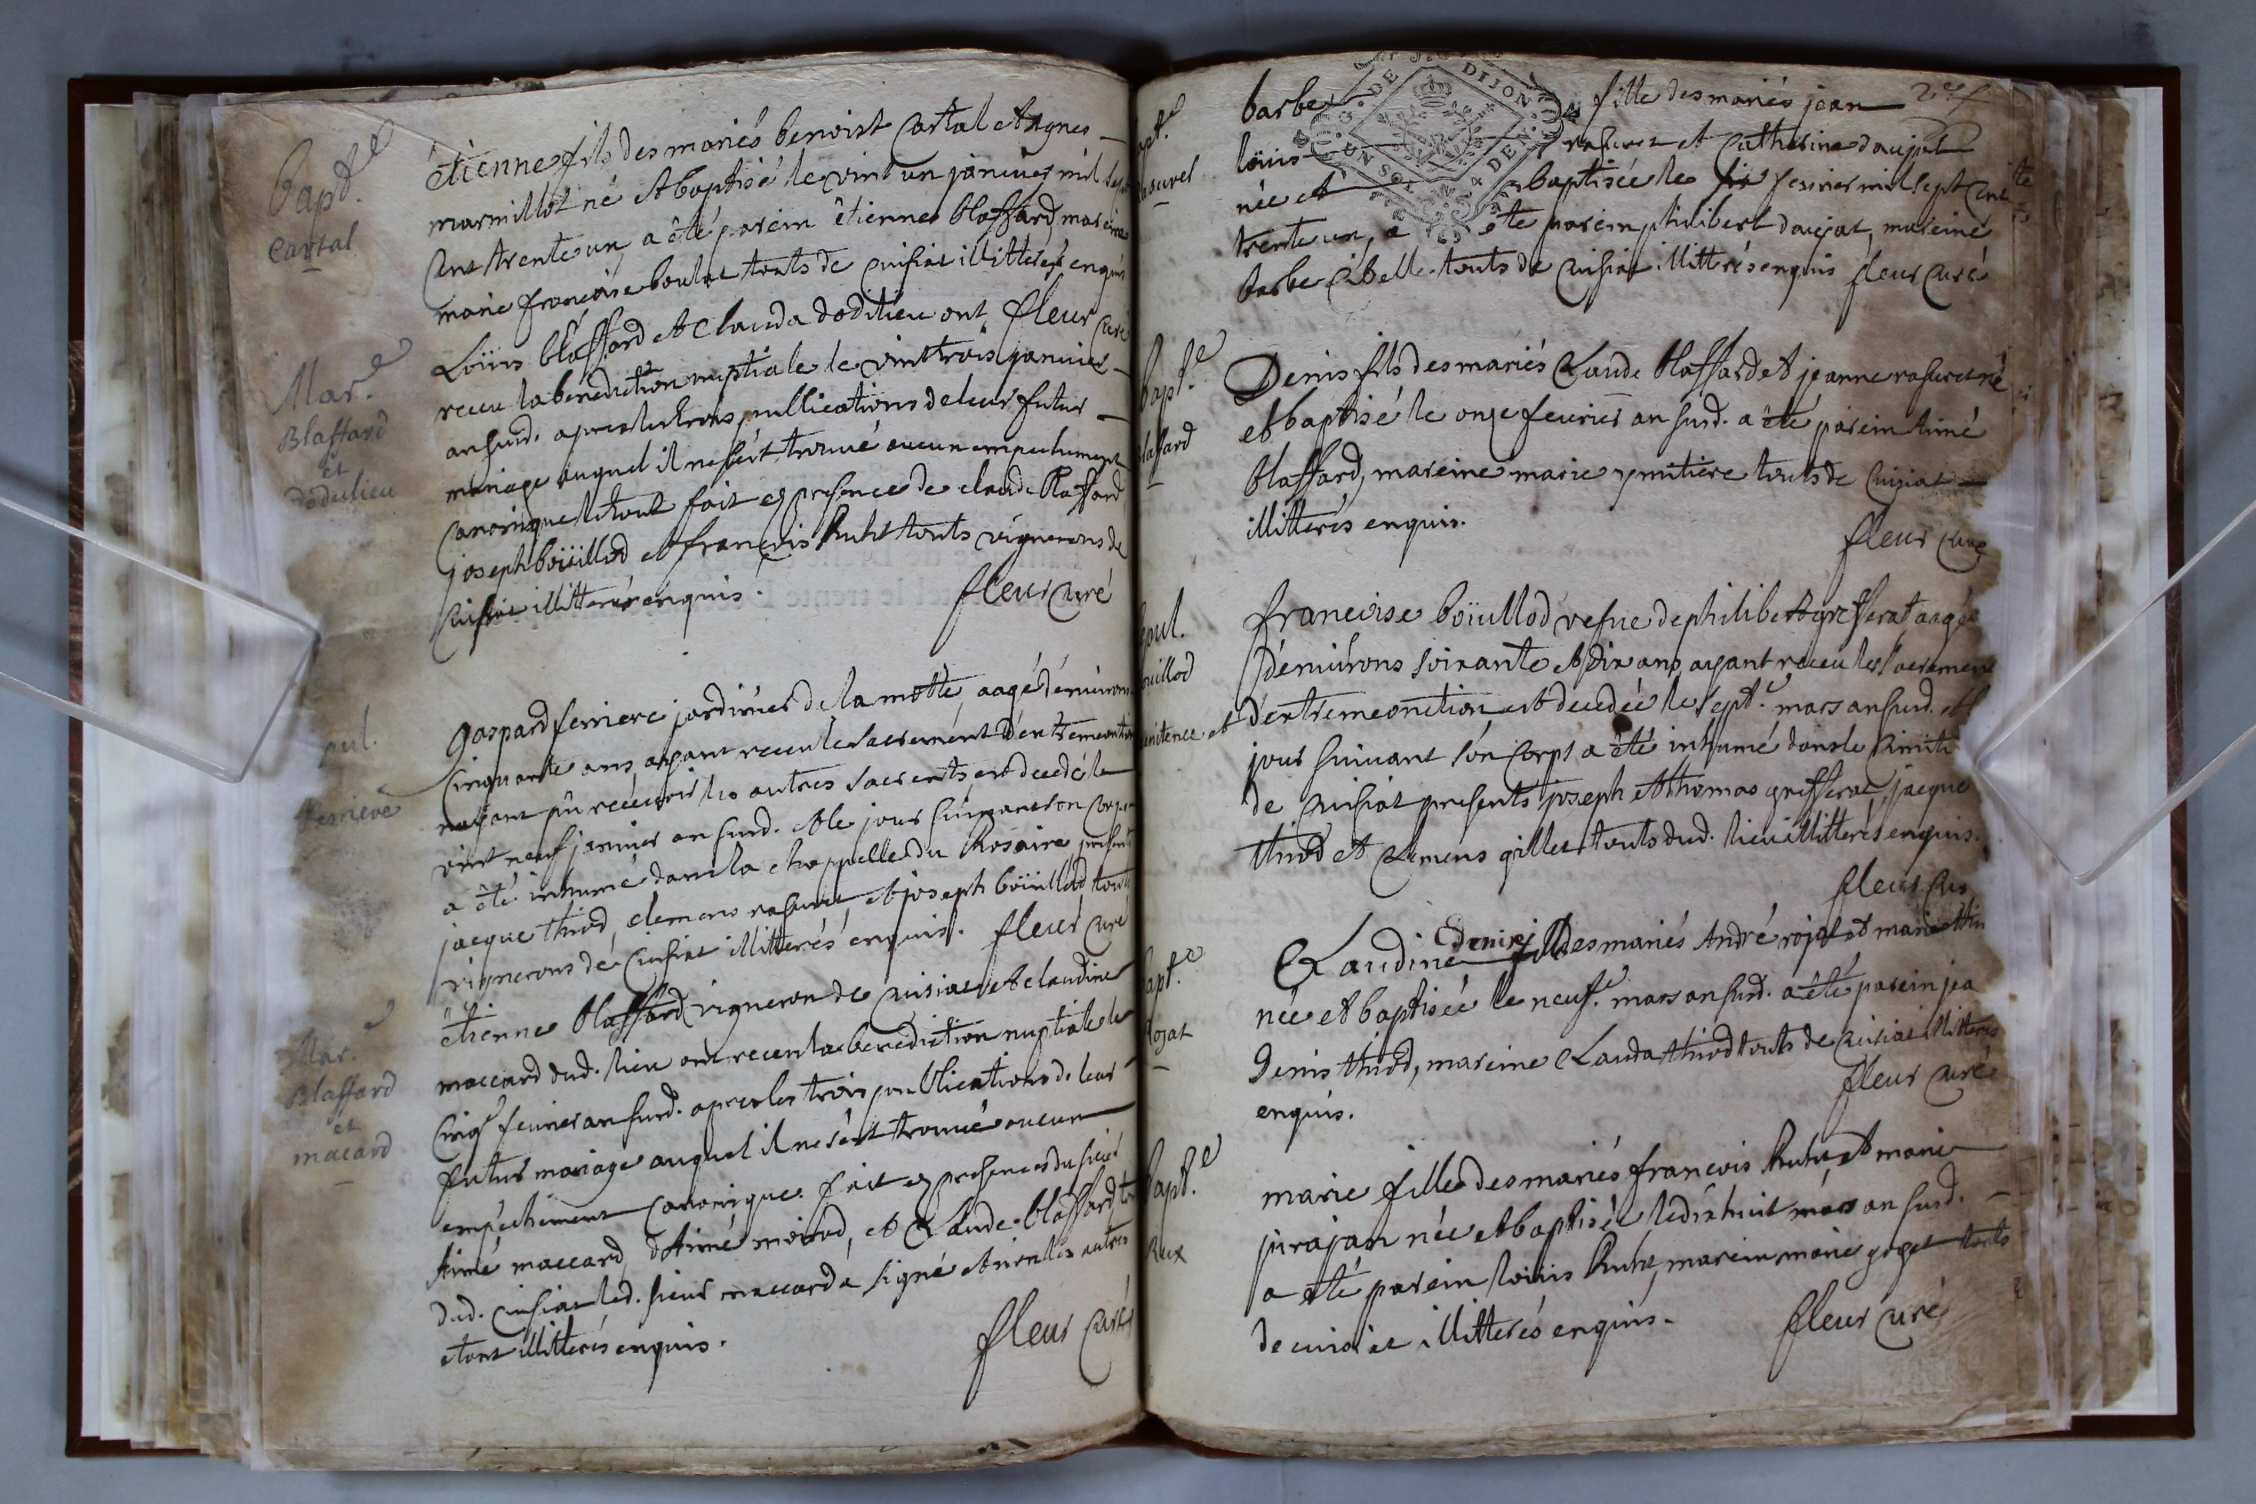 Bapt.e
Cartal
étienne fils des mariés benoist Cartal et Agnes
marmillot né et baptisé le vint un janvier mil sept
cent trente un, a été parein êtienne blaffard, mareine
marie francoise boulat touts de cuisiat illitterés enquis
fleur curé
Mar.e
Blaffard
et
dodulieu
Loüis blaffard et Clauda dodulieu ont
receu la benediction nuptiale le vint trois janvier
an susd. apres les trois publications de leur futur
mariage auquel il ne s'est trouvé aucun empechement
canonique le tout fait en presence de claude blaffard
joseph boüillod et francois Ruht touts vignerons de
Cuisiat illitterés enquis.
fleur curé
pul.
ferriere
gaspard ferriere jardinier de la motte, aagé d'environs
cinquante ans, ayant receu le sacrement d'extremeonction
n'ayant pû recevoir les autres sacrents, est decedé le
vint neuf janvier an susd. et le jour suivant son corps
a été inhumé dans la chappelle du Rosaire, presents
jacque thiod, clemens rasurel, et joseph boüillod touts
vignerons de Cuisiat illitterés enquis. fleur curé
Mar.e
Blaffard
et
macard
êtienne blaffard vigneron de Cuisiat et claudine
maccard dud. lieu ont receu la benediction nuptiale le
cinq fevrier an susd. apres les trois publications de leur
futur mariage auquel il ne s'est trouvé aucun
empechement canonique. fait en presence du sieur
Aimé maccard, d'Aimé moirod, et Claude blaffard
dud. cuisiat led. sieur maccard a signé et non les autres
etant illitterés enquis.
fleur curé
DE DIJON
barbe fille des mariés jean
loüis rasurel et Catherine daujat
née et baptisée le six fevrier mil sept cent
trente un, a été parein philibert daujat, mareine
barbe Cabelle touts de Cuisiat illitterés enquis fleur curé
bapt.e
blaffard
Denis fils des mariés Claude blaffard et jeanne rasurel né
et baptisé le onze fevrier an susd. a été parein Aimé
blaffard, mareine marie ymitiere touts de Cuisiat
illitterés enquis.
fleur curé
pul.
ouillod
francoise boüillod vefue de philibert greffera aagée
d'environs soixante et dix ans, ayant receu les sacrement
penitence et d'extremeonction, est decedée le sept.e mars an susd. et
jour suivant son corps a été inhumé dans le cimiti
de cuisiat presents joseph et thomas greffera, jacque
thiod et Clemens gillet touts dud. lieu illitterés enquis.
fleur cur
bapt.e
Rojat
Claudine denise fille des mariés André rojat et marie thi
née et baptisée le neuf.e mars an susd. a été parein jea
Denis thiod, mareine Clauda thiod touts de cuisiat illitterés
enquis.
fleur curé
Bapt.e
Rux
marie fille des mariés francois Ruht, et marie
pirajan née et baptisée le dix huit mars an susd.
a été parein loüis Ruht, mareine marie goget touts
de cuisiat illitterés enquis.
fleur curé